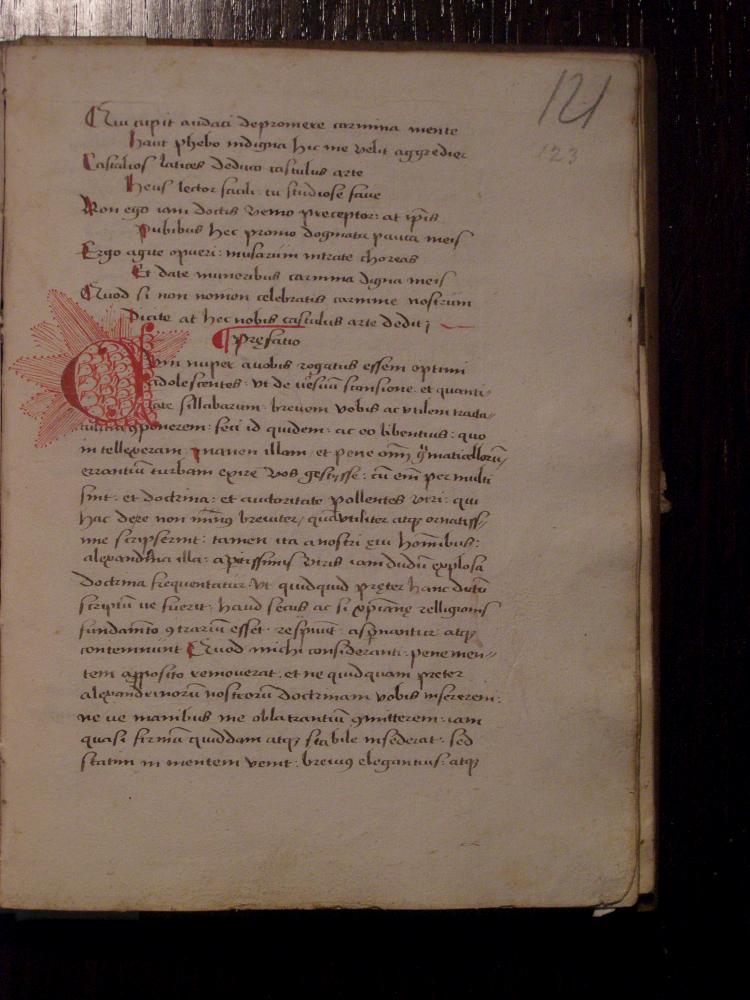 121
123
Qui cupit audaci depromere carmina mente
haut phebo indigna hic me velit aggredier
Castalios latices deduco castulus arte
Heus lector facili: tu studiose faue
Non ego iam doctis vemo preceptor: at ip̄is
Pubibus hec promo dogmata pauca meis
Ergo agite o pueri: musarum intrate choreas
Et date muneribus carmina digna meis
Quod si non nomen celebratis carmine nostrum
Dicite at hec nobis castulus arte dedit;
Pręfatio
Cvm nuper a uobis rogatus essem optimi
adolescentes: vt de uersuū scansione et quanti-
tate sillabarum: breuem vobis ac vtilem tracta-
tulum ꝯponerem: feci id quidem: ac eo libentius: quo
intellexeram: inanem illam: et pene om̄m
errantiū turbam exire vos gestisse: cū em̄ per multi
sint: et doctrina: et auctoritate pollentes viri: qui
hac de re non min9 breuiter, quā vtiliter atqȝ ornatiss-
ime scripserint: tamen ita a nostri eui hominibus:
alexandrina illa: a peritissimis viris iam dudū explosa
doctrina frequentatur: vt quidquid pręter hanc dictū
scriptū ue fuerit: haud secus ac si xp̄ianę relligionis
fundamēto ꝯtrariū esset: respuūt: asp̄nantur atqȝ
contemnunt Quod michi consideranti: pene men-
tem apposito remouerat: et ne quidquam preter
alexandrinorū nostrorū doctrinam vobis insererem:
ne ue manibus me oblatrantiū ꝯmitterem: iam
quasi firmū quiddam atqȝ stabile insederat: sed
statim in mentem venit: breui9 elegantius: atqȝ